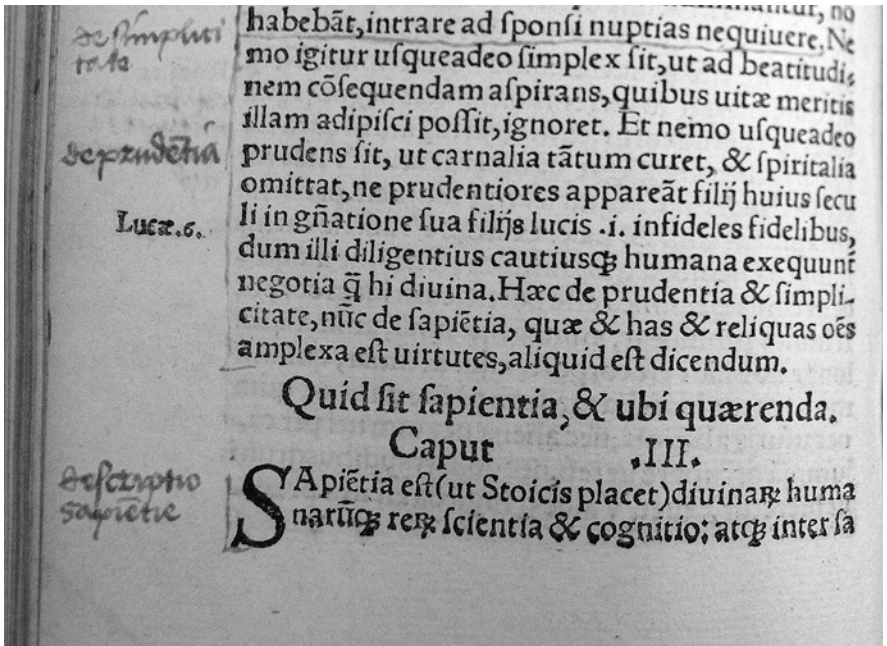 habebāt, intrare ad ſponſi nuptias nequiuere. Ne
mo igitur uſqueadeo ſimplex ſit, ut ad beatitudi⸗
nem cōſequendam aſpirans, quibus uitæ meritis
illam adipiſci poſſit, ignoret. Et nemo uſqueadeo
prudens ſit, ut carnalia tātum curet, & ſpiritalia
omittat, ne prudentiores appareāt filij huius ſecu
li in gñatione ſua filijs lucis .i. infideles fidelibus,
dum illi diligentius cautiusq̃ humana exequunt̃
negotia q̃ hi diuina. Hæc de prudentia & ſimpli⸗
citate, nūc de ſapiētia, quæ & has & reliquas oēs
amplexa eſt uirtutes, aliquid eſt dicendum.
Quid ſit ſapientia, & ubi quærenda.
Caput .III.
SApiētia eſt (ut Stoicis placet) diuinaꝝ huma
narūq̃ reꝝ ſcientia & cognitio; atq̃ inter ſa
de ſimplici
tate
de prudētia
Lucæ.6.
deſcriptio
sapiētie